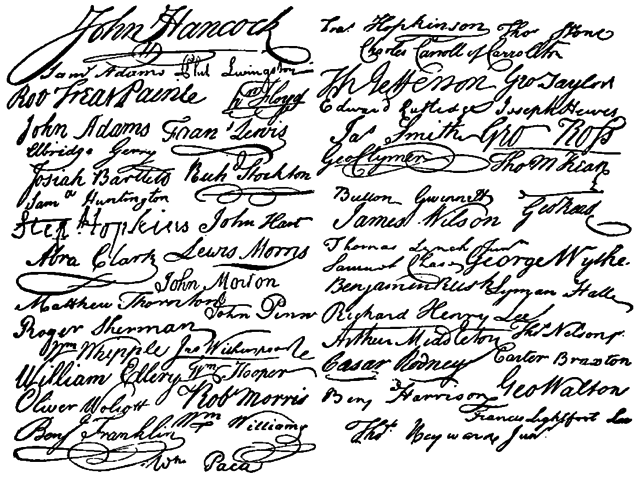 John Hancock
Saml Adams Phil Livingston
Robt Treat Paine Wm Floyd
John Adams Frans Lewis
Elbridge Gerry
Josiah Bartlett Rich Stockton
Saml Huntington
Step Hopkins John Hart
Abra Clark Lewis Morris
John Morton
Matthew Thornton John Penn
Roger Sherman
Wm Whipple Jno Witherspoon
William Ellery Wm Hooper
Oliver Wolcott Robt Morris
Benj Franklin Wm Williams
Wm Paca
Fras Hopkinson Tho Stone
Charles Carroll of Carrollton
Th Jefferson Geo Taylor
Edward Rutledge Joseph Hewes
Jas Smith Geo Ross
Geo Clymer Tho M Kean
Button Gwinnett Geo Read
James Wilson
Thomas Lynch Junr
Samuel Chase George Wythe
Benjamin Rush Lyman Hall
Richard Henry Lee
Arthur Middleton Thos Nelson jr
Caesar Rodney Carter Braxton
Benj Harrison Geo Walton
Francis Lightfoot Lee
Thos Heyward Junr